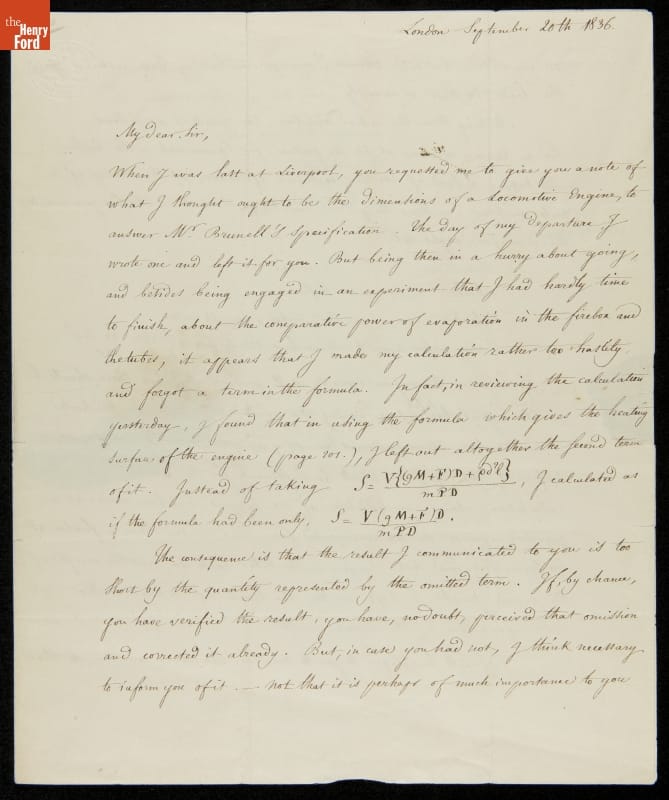 the
Henry
Ford
London September 20th 1836.
My dear Sir,
When I was last at Liverpool, you requested me to give you a note of
what I thought ought to be the dimensions of a Locomotive Engine, to
answer Mr. Brunell's specification. The day of my departure I
wrote one and left it for you. But being then in a hurry about going,
and besides being engaged in an experiment that I had hardly time
to finish, about the comparative power of evaporation in the firebox and
the tubes, it appears that I made my calculation rather too hastily
and forgot a term in the formula. In fact, in reviewing the calculation
yesterday, I found that in using the formula which gives the heating
surface of the engine (page 201.), I left out altogether the second term
of it. Instead of taking S = V{(gM+F)D + pd²l} / mPD, I calculated as
if the formula had been only, S = V(gM+F)D / mPD.
The consequence is that the result I communicated to you is too
short by the quantity represented by the omitted term. If, by chance,
you have verified the result, you have, no doubt, perceived that omission
and corrected it already. But, in case you had not, I think necessary
to inform you of it. — not that it is perhaps of much importance to you